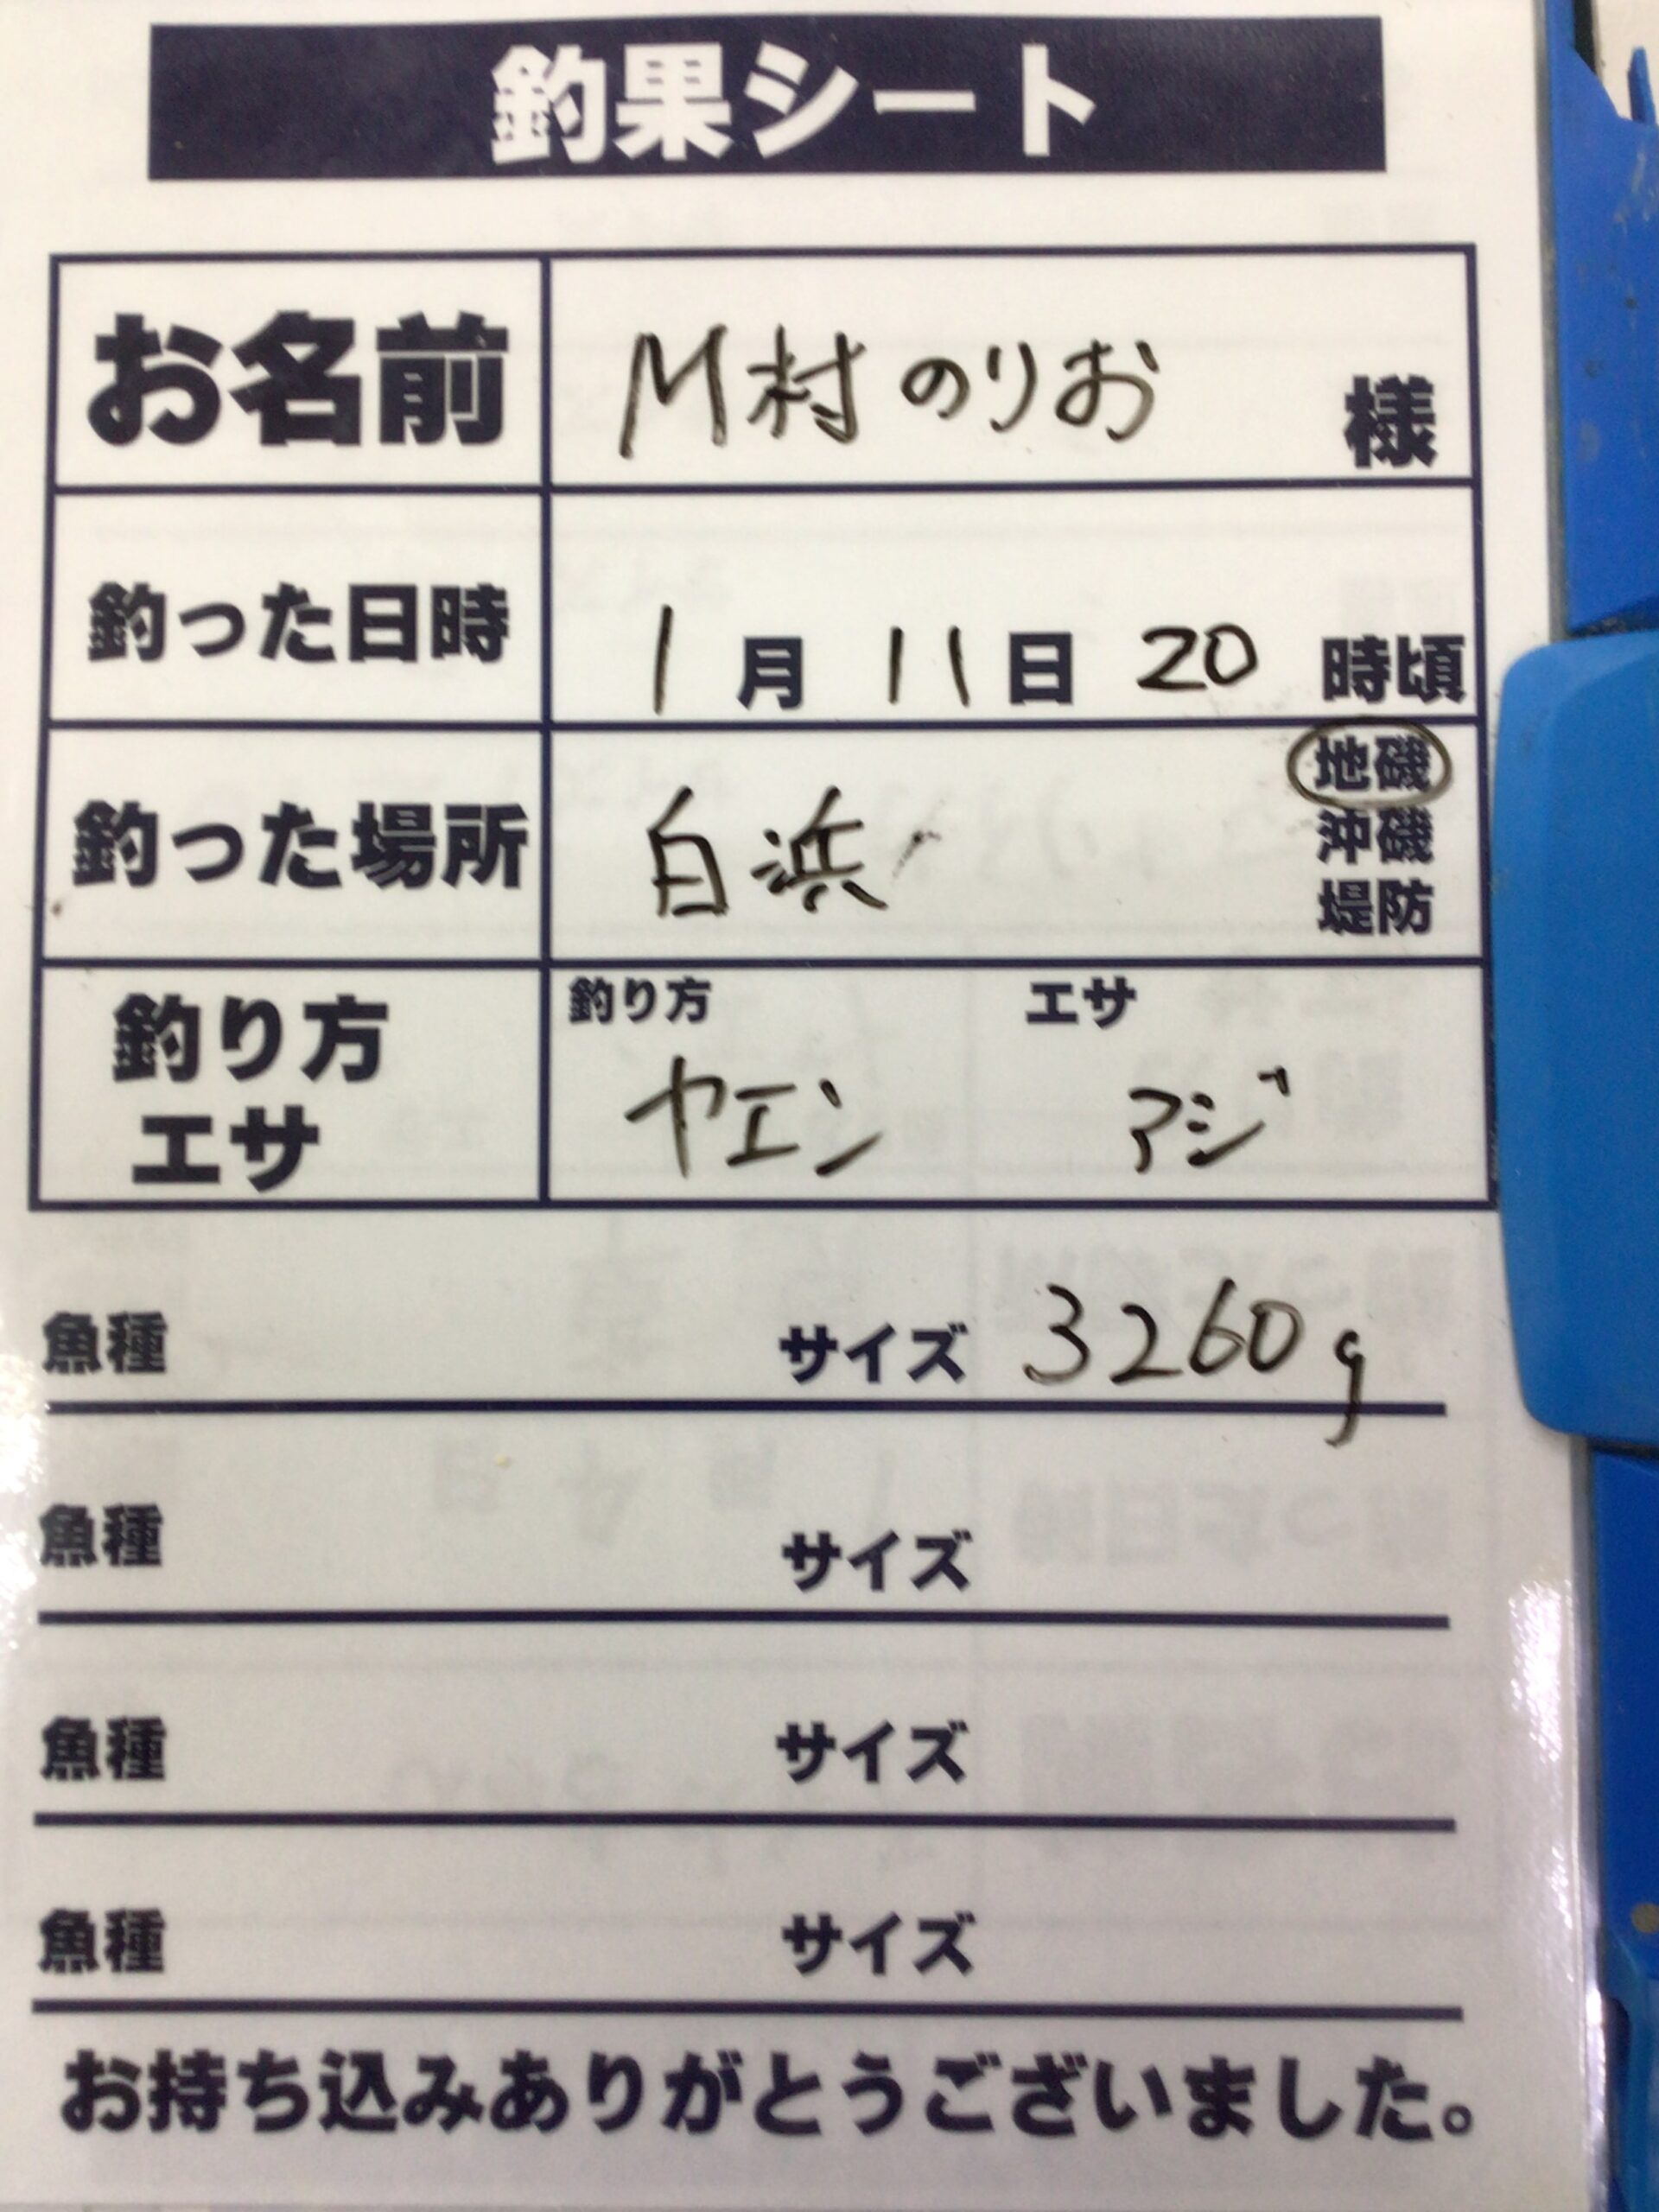 釣果シート
お名前 M村のりお 様
釣った日時 1月11日20時頃
釣った場所 白浜 地磯
沖磯
堤防
釣り方 エサ
釣り方 ヤエン アジ
エサ
魚種 サイズ 3260g
魚種 サイズ
魚種 サイズ
魚種 サイズ
お持ち込みありがとうございました。